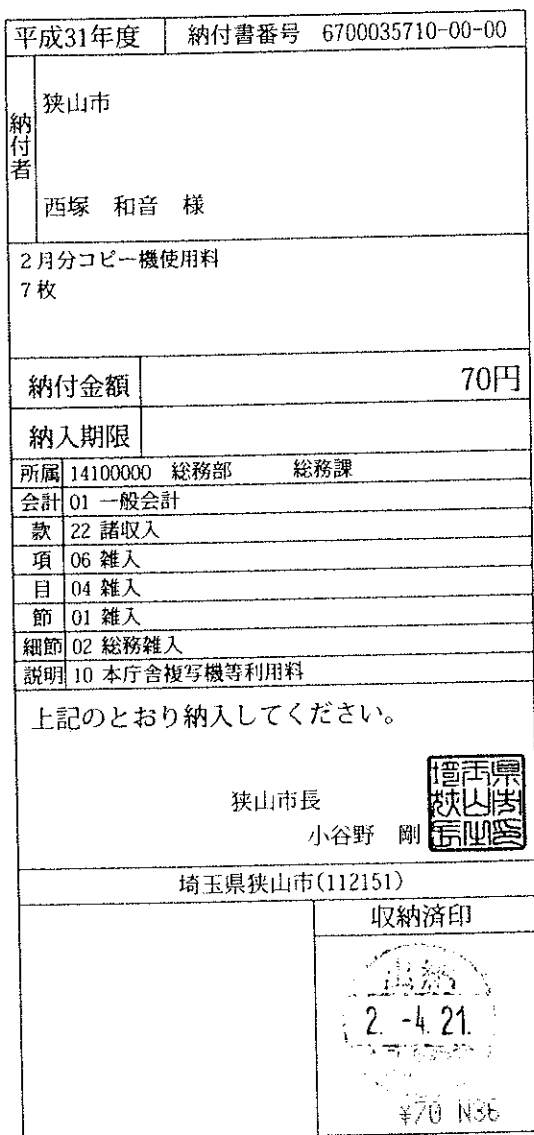 平成31年度 納付書番号 6700035710-00-00
納付者
狭山市
西塚 和音 様
2月分コピー機使用料
7枚
納付金額 70円
納入期限
所属 14100000 総務部 総務課
会計 01 一般会計
款 22 諸収入
項 06 雑入
目 04 雑入
節 01 雑入
細節 02 総務雑入
説明 10 本庁舎複写機等利用料
上記のとおり納入してください。
狭山市長
小谷野 剛
埼玉県狭山市(112151)
収納済印
出納
2. -4. 21.
¥70 N36